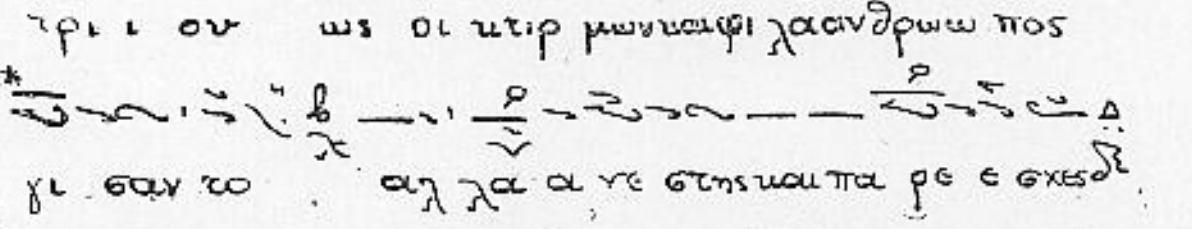 τρι ι ου ως οι κτιρ μωνκαιφι λαανθρωω πος
γι σαν το αλ λα α νε στησκαιπα ρε ε σχες